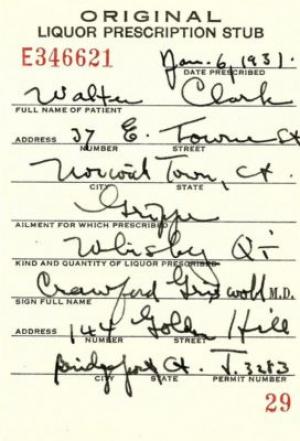 ORIGINAL
LIQUOR PRESCRIPTION STUB
E346621
Jan. 6, 1931.
DATE PRESCRIBED
Walter Clark
FULL NAME OF PATIENT
ADDRESS 37 E. Towne St
NUMBER STREET
Norwich Town, Ct.
CITY STATE
Grippe
AILMENT FOR WHICH PRESCRIBED
Whisky Qt
KIND AND QUANTITY OF LIQUOR PRESCRIBED
Crawford Griswold M.D.
SIGN FULL NAME
ADDRESS 144 Golden Hill
NUMBER STREET
Bridgeport Ct. J. 3283
CITY STATE PERMIT NUMBER
29